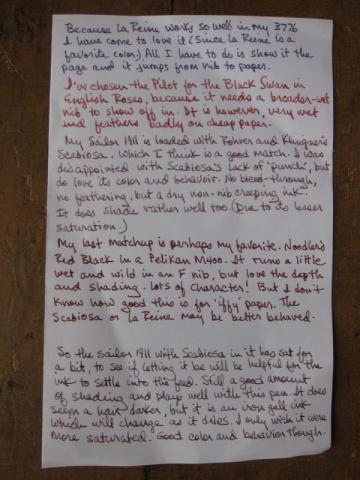 Because La Reine works so well in my 3776
I have come to love it (Since La Reine is a
favorite color.) All I have to do is show it the
page and it jumps from nib to paper.
I've chosen the Pilot for the Black Swan in
English Roses, because it needs a broader-wet
nib to show off in. It is however, very wet
and feathers badly on cheap paper.
My Sailor 1911 is loaded with Rohrer and Klingner's
Scabiosa, which I think is a good match. I was
disappointed with Scabiosa's lack of "punch", but
do love its color and behavior. No bleed-through,
no feathering, but a dry non-nib creeping ink.
It does shade rather well too. (Due to its lesser
saturation.)
My last matchup is perhaps my favorite. Noodler's
Red Black in a Pelikan M400. It runs a little
wet and wild in an F nib, but love the depth
and shading. Lots of character! But I don't
know how good this is for "iffy" paper. The
Scabiosa or La Reine may be better behaved.
So the Sailor 1911 with Scabiosa in it has sat for
a bit, to see if letting it be will be helpful for the
ink to settle into the feed. Still a good amount
of shading and plays well with this pen. It does
seem a hair darker, but it is an iron gall ink
which will change as it dries. I only wish it were
more saturated. Good color and behavior though.